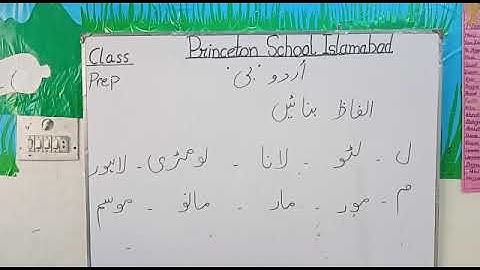 Class
Princeton School Islamabad
Prep
اُردو "بی"
الفاظ بنائیں
ل - لٹو - لانا - لومڑی - لاہور
م - مور - مار - مالو - موسم